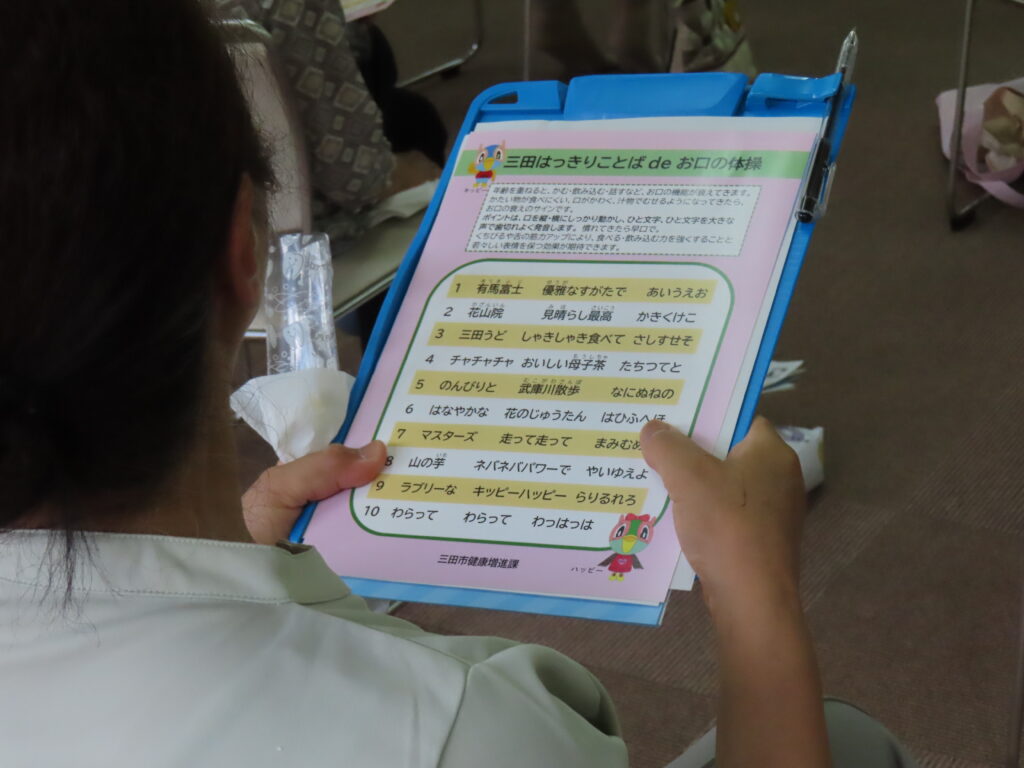 三田はっきりことば de お口の体操
キッピー
年齢を重ねると、かむ・飲み込む・話すなど、お口の機能が衰えてきます。
かたい物が食べにくい、口がかわく、汁物でむせるようになってきたら、
お口の衰えのサインです。
ポイントは、口を縦・横にしっかり動かし、ひと文字、ひと文字を大きな
声で歯切れよく発音します。慣れてきたら早口で。
くちびるや舌の筋力アップにより、食べる・飲み込む力を強くすることと
若々しい表情を保つ効果が期待できます。
1 有馬富士 優雅なすがたで あいうえお
2 花山院 見晴らし最高 かきくけこ
3 三田うど しゃきしゃき食べて さしすせそ
4 チャチャチャ おいしい母子茶 たちつてと
5 のんびりと 武庫川散歩 なにぬねの
6 はなやかな 花のじゅうたん はひふへほ
7 マスターズ 走って走って まみむめ
8 山の芋 ネバネバパワーで やいゆえよ
9 ラブリーな キッピーハッピー らりるれろ
10 わらって わらって わっはっは
三田市健康増進課
ハッピー